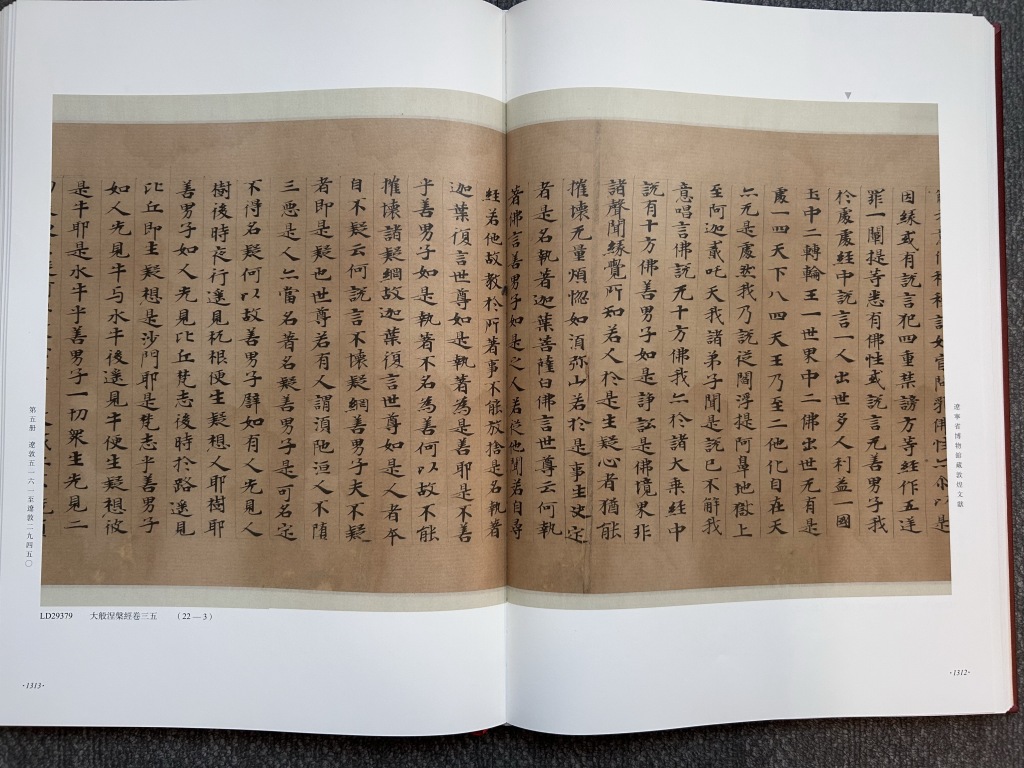 遼寧省博物館藏敦煌文獻
因緣或有說言犯四重禁謗方等經作五逆
罪一闡提等悉有佛性或說言无善男子我
於處處經中說言一人出世多人利益一國
土中二轉輪王一世界中二佛出世无有是
處一四天下八四天王乃至二他化自在天
亦无是處然我乃說從閻浮提阿鼻地獄上
至阿迦貳吒天我諸弟子聞是說已不解我
意唱言佛說无十方佛我亦於諸大乘經中
說有十方佛善男子如是諍訟是佛境界非
諸聲聞緣覺所知若人於是生疑心者猶能
摧壞无量煩惱如須弥山若於是事生決定
者是名執著迦葉菩薩白佛言世尊云何執
著佛言善男子如是之人若從他聞若自尋
經若他故教於所著事不能放捨是名執著
迦葉復言世尊如是執著為是善耶是不善
乎善男子如是執著不名為善何以故不能
摧壞諸疑網故迦葉復言世尊如是人者本
自不疑云何說言不壞疑網善男子夫不疑
者即是疑也世尊若有人謂須陁洹人不墮
三惡是人亦當名著名疑善男子是可名定
不得名疑何以故善男子譬如有人先見人
樹後時夜行遙見杌根便生疑想人耶樹耶
善男子如人先見比丘梵志後時於路遙見
比丘即生疑想是沙門耶是梵志乎善男子
如人先見牛与水牛後遙見牛便生疑想彼
是牛耶是水牛乎善男子一切眾生先見二
第五册 遼敦五一六一一至遼敦二九四五〇
LD29379 大般涅槃經卷三五 (22—3)
·1312·
·1313·